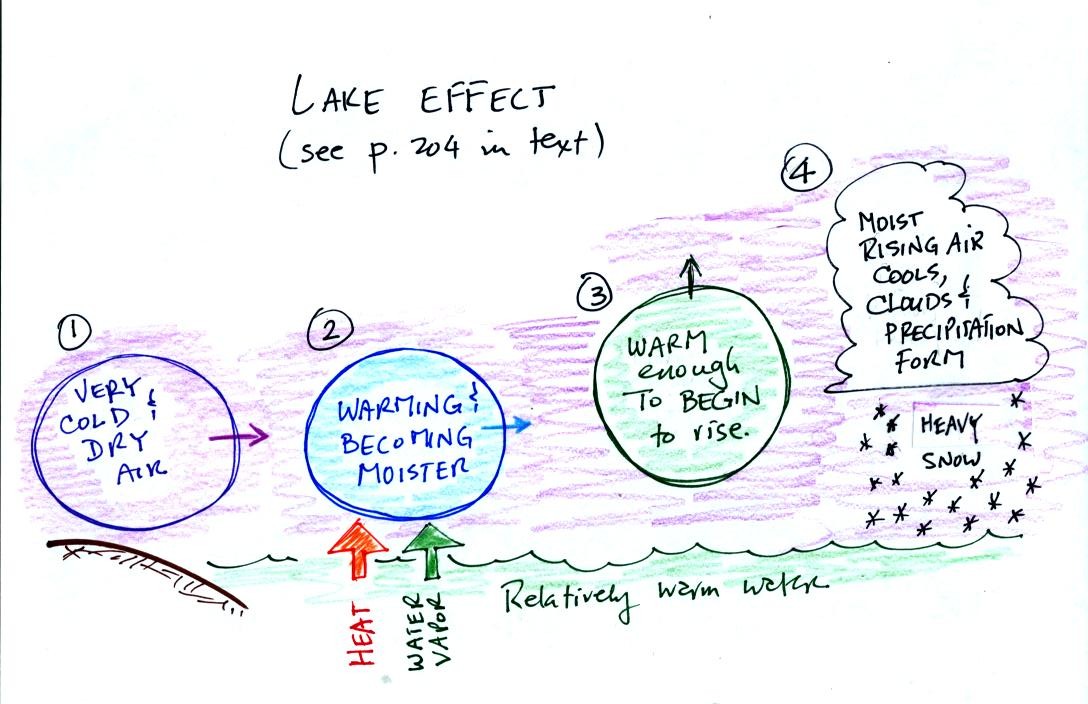 LAKE EFFECT
(see p. 204 in text)
1
VERY
COLD &
DRY
AIR
2
WARMING &
BECOMING
MOISTER
HEAT
WATER
VAPOR
3
WARM
enough
TO BEGIN
to rise.
4
MOIST
RISING AIR
COOLS,
CLOUDS &
PRECIPITATION
FORM
HEAVY
SNOW
Relatively warm water